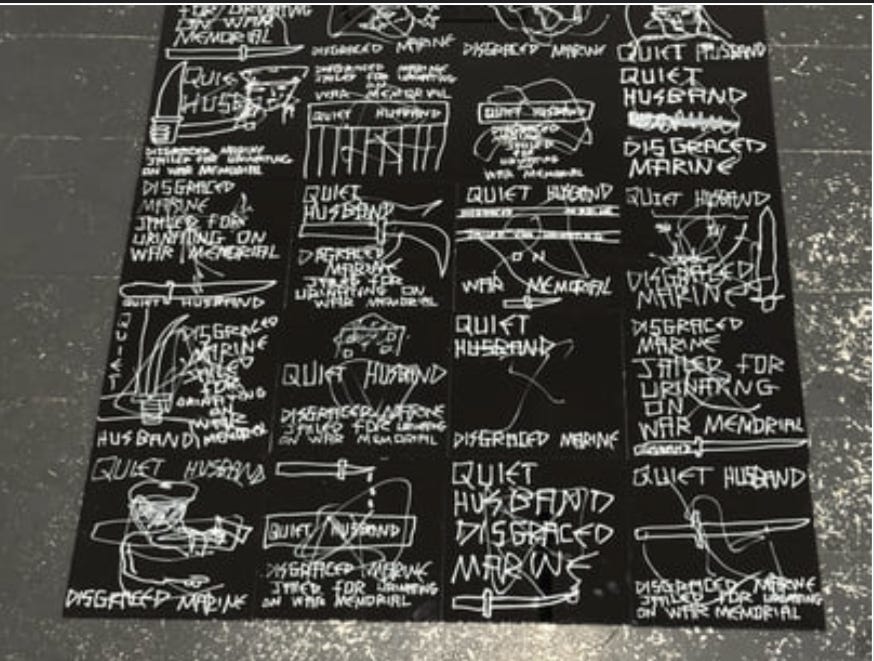 FOR URINATING
ON WAR
MEMORIAL
DISGRACED MARINE
DISGRACED MARINE
QUIET HUSBAND
QUIET
HUSB
DISGRACED MARINE
JAILED FOR URINATING
ON WAR MEMORIAL
DISGRACED MARINE
JAILED FOR URINATING
ON
WAR MEMORIAL
QUIET HUSBAND
QUIET HUSBAND
DISGRACED
MARINE
JAILED
FOR
URINATING
ON THE
WAR MEMORIAL
QUIET
HUSBAND
DISGRACED
MARINE
DISGRACED
MARINE
JAILED FOR
URINATING ON
WAR MEMORIAL
QUIET HUSBAND
QUIET
HUSBAND
DISGRACED
MARINE
JAILED FOR
URINATING ON
WAR MEMORIAL
QUIET HUSBAND
DISGRACED MARINE
JAILED FOR URINATING
ON
WAR MEMORIAL
QUIET HUSBAND
DISGRACED
MARINE
QUIET
HUSBAND
DISGRACED
MARINE
JAILED
FOR
URINATING
ON
WAR
MEMORIAL
QUIET HUSBAND
DISGRACED MARINE
JAILED FOR URINATING
ON WAR MEMORIAL
QUIET
HUSBAND
DISGRACED MARINE
DISGRACED
MARINE
JAILED FOR
URINATING
ON
WAR MEMORIAL
QUIET HUSBAND
DISGRACED MARINE
QUIET HUSBAND
DISGRACED MARINE
JAILED FOR URINATING
ON WAR MEMORIAL
QUIET
HUSBAND
DISGRACED
MARINE
QUIET HUSBAND
DISGRACED MARINE
JAILED FOR URINATING
ON WAR MEMORIAL